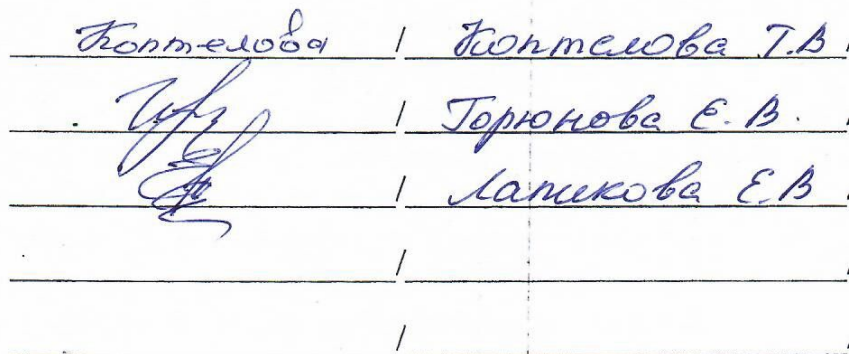 Коптелова / Коптелова Т.В /
/ Горюнова Е.В. /
/ Лапикова Е.В /
/ /
/ /